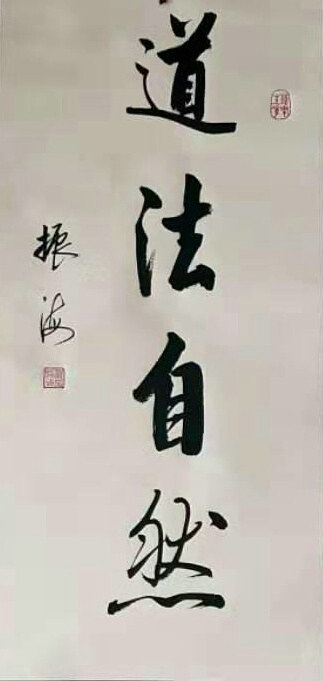 道法自然
振海